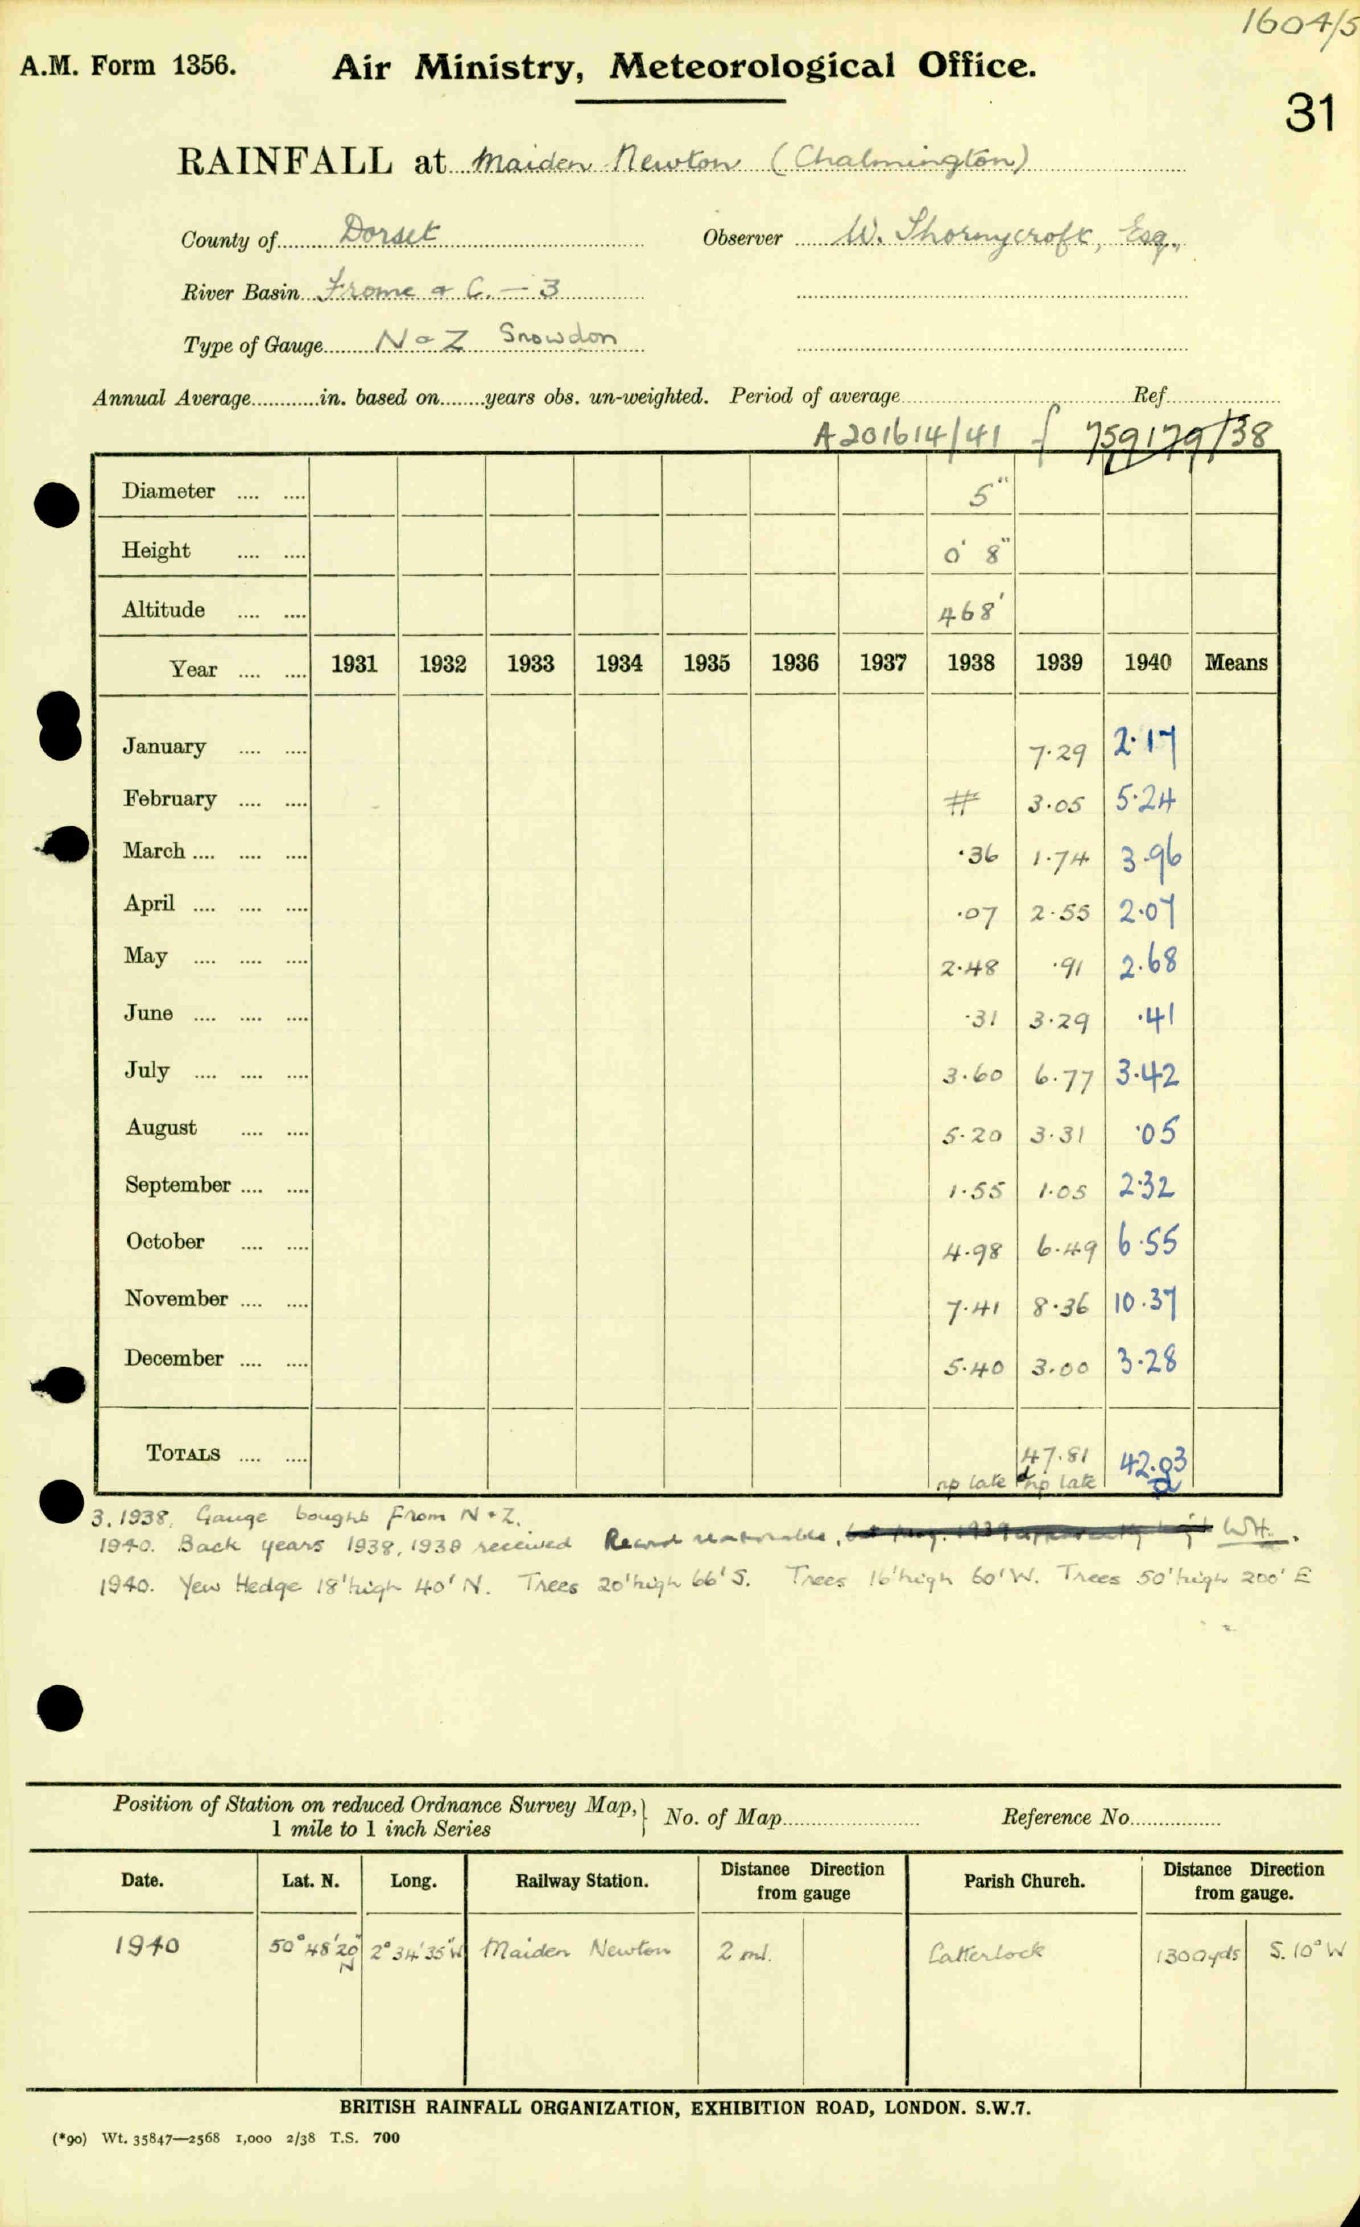 1604/5
A.M. Form 1356.
Air Ministry, Meteorological Office.
31
RAINFALL at Maiden Newton (Chalmington)
County of Dorset Observer W. Thornycroft, Esq.,
River Basin Frome & C. — 3
Type of Gauge N & Z Snowdon
Annual Average............in. based on.......years obs. un-weighted. Period of average Ref
A201614/41 759179/38
Diameter .... .... 5"
Height .... .... 0' 8"
Altitude .... .... 468'
Year .... .... 1931 1932 1933 1934 1935 1936 1937 1938 1939 1940 Means
January .... .... 7.29 2.17
February .... .... # 3.05 5.24
March .... .... .... .36 1.74 3.96
April .... .... .... .07 2.55 2.07
May .... .... .... 2.48 .91 2.68
June .... .... .... .31 3.29 .41
July .... .... .... 3.60 6.77 3.42
August .... .... 5.20 3.31 .05
September .... .... 1.55 1.05 2.32
October .... .... 4.98 6.49 6.55
November .... .... 7.41 8.36 10.37
December .... .... 5.40 3.00 3.28
TOTALS .... .... 47.81 42.
np late np late
3. 1938. Gauge bought from N & Z.
1940. Back years 1938, 1939 received Record reasonable, WH.
1940. Yew Hedge 18' high 40' N. Trees 20' high 66' S. Trees 16' high 60' W. Trees 50' high 200' E
Position of Station on reduced Ordnance Survey Map, 1 mile to 1 inch Series } No. of Map Reference No
Date. Lat. N. Long. Railway Station. Distance Direction from gauge Parish Church. Distance Direction from gauge.
1940 50° 48' 20" N 2° 34' 35" W Maiden Newton 2 ml. Catterlock 1300yds S. 10° W
BRITISH RAINFALL ORGANIZATION, EXHIBITION ROAD, LONDON. S.W.7.
(*90) Wt. 35847—2568 1,000 2/38 T.S. 700